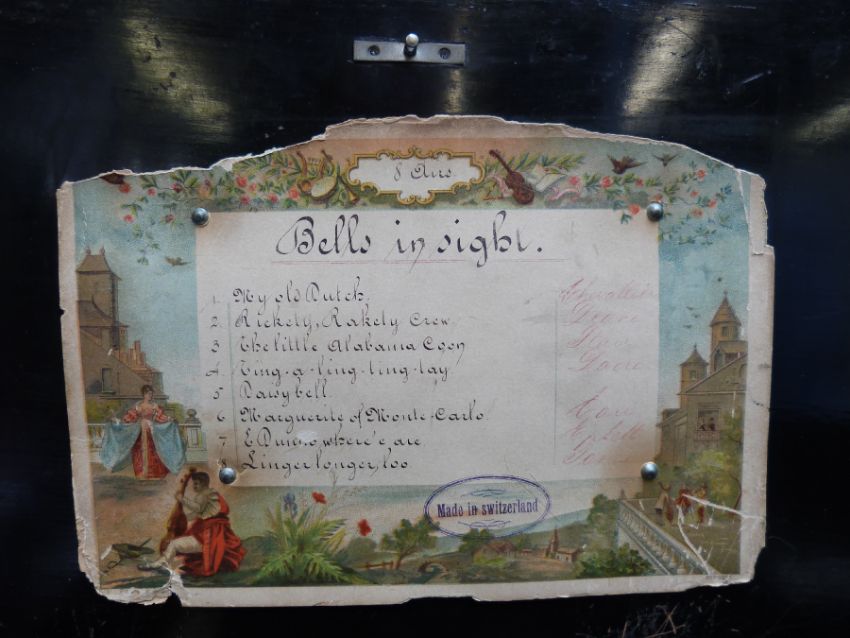 8 Airs
Bells in sight.
1 My old Dutch.
2 Rickety, Rakety Crew
3 The little Alabama Coon
4 Ting-a-ling-ting-tay
5 Daisy bell
6 Marguerite of Monte-Carlo
7 E Dunno, where'e are
8 Linger longer, loo
Made in switzerland